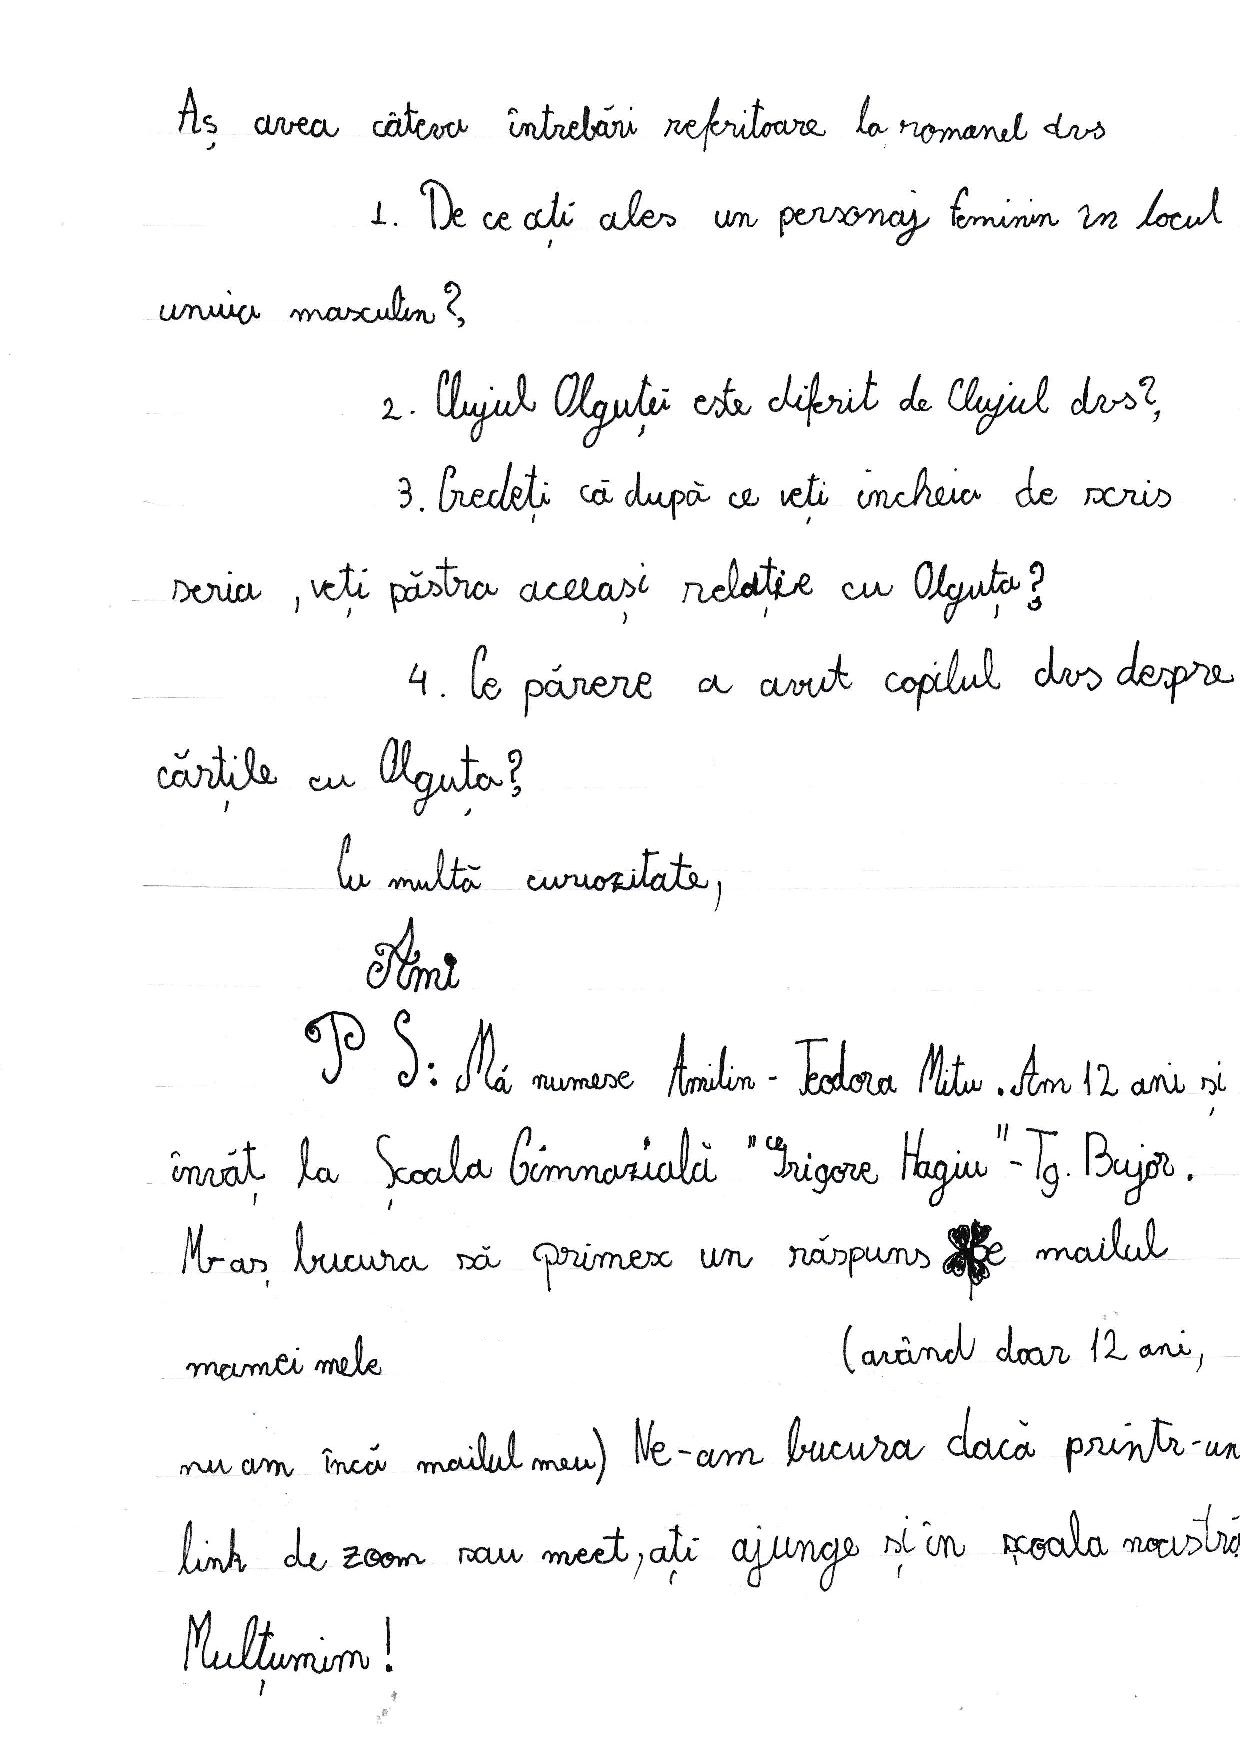 Aș avea câteva întrebări referitoare la romanul dvs
1. De ce ați ales un personaj feminin în locul
unuia masculin?
2. Clujul Olguței este diferit de Clujul dvs?
3. Credeți că după ce veți încheia de scris
seria, veți păstra aceeași relație cu Olguța?
4. Ce părere a avut copilul dvs despre
cărțile cu Olguța?
Cu multă curiozitate,
Ami
PS: Mă numesc Amilin-Teodora Mitu. Am 12 ani și
învăț la Școala Gimnazială "Grigore Hagiu"-Tg. Bujor.
M-aș bucura să primesc un răspuns pe mailul
mamei mele (având doar 12 ani,
nu am încă mailul meu) Ne-am bucura dacă printr-un
link de zoom sau meet, ați ajunge și în școala noastră
Mulțumim!